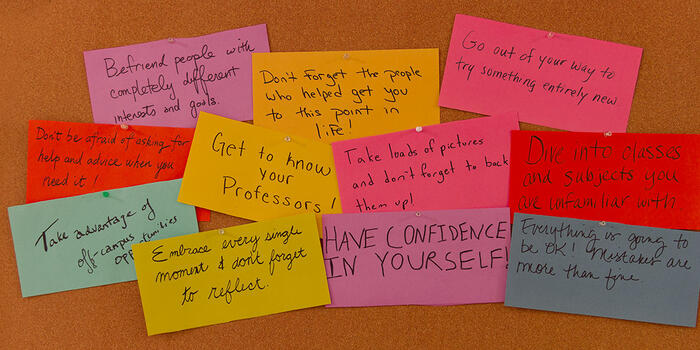 Befriend people with
completely different
interests and goals.
Don't forget the people
who helped get you
to this point in
life!
Go out of your way to
try something entirely new
Don't be afraid of asking for
help and advice when you
need it!
Get to know
your
Professors!
Take loads of pictures
and don't forget to back
them up!
Dive into classes
and subjects you
are unfamiliar with
Take advantage of
off-campus
Embrace every single
moment & don't forget
to reflect.
HAVE CONFIDENCE
IN YOURSELF!
Everything is going to
be OK! Mistakes are
more than fine